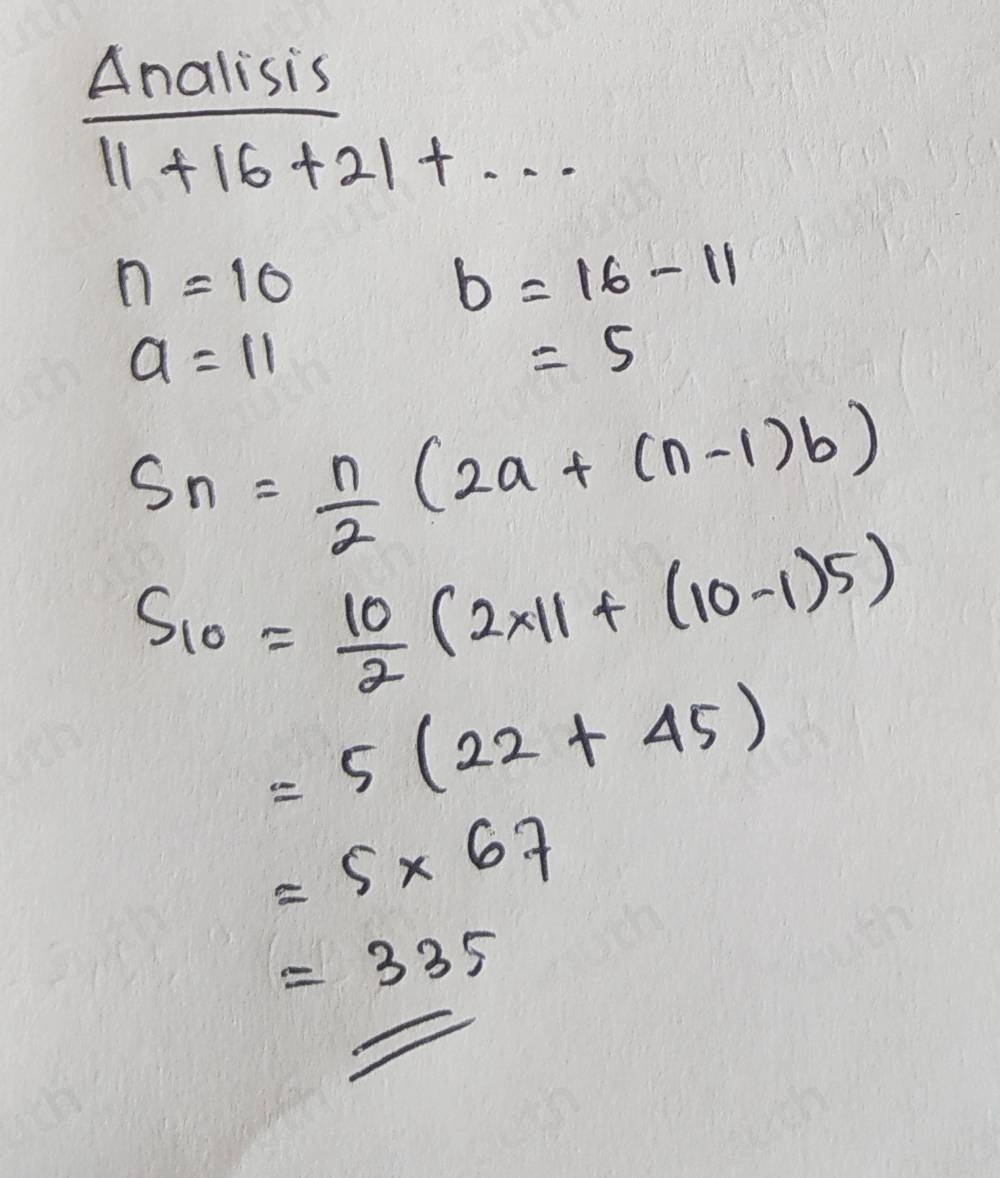 Analisis
11 + 16 + 21 + ...
n = 10 b = 16 - 11
a = 11 = 5
Sn = n/2 (2a + (n-1)b)
S10 = 10/2 (2×11 + (10-1)5)
= 5 (22 + 45)
= 5 × 67
= 335